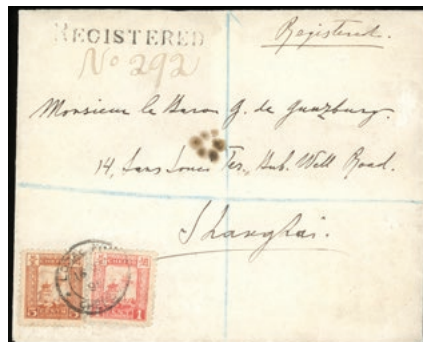 REGISTERED
Registered.
No 292
Monsieur le Baron G. de Gunzburg.
14, Sans Souci Ter., Bub. Well Road.
Shanghai.
LOCAL
5
1